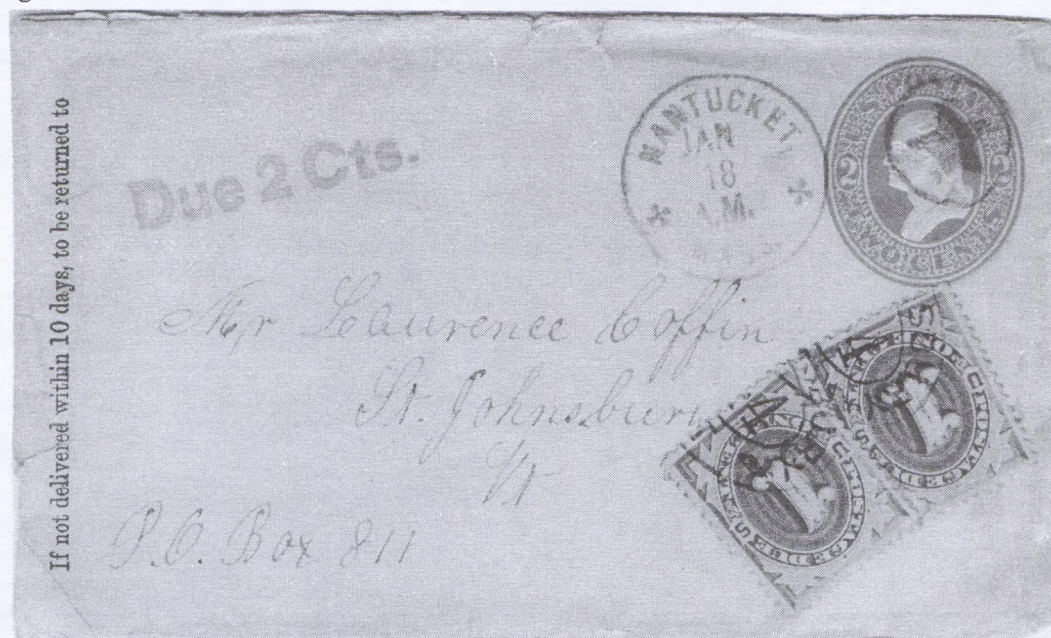 If not delivered within 10 days, to be returned to
Due 2 Cts.
NANTUCKET,
JAN
18
A.M.
MASS
U.S. POSTAGE
2 2
TWO CENTS
Mr Laurence Coffin
St. Johnsbury
Vt
P.O. Box 811